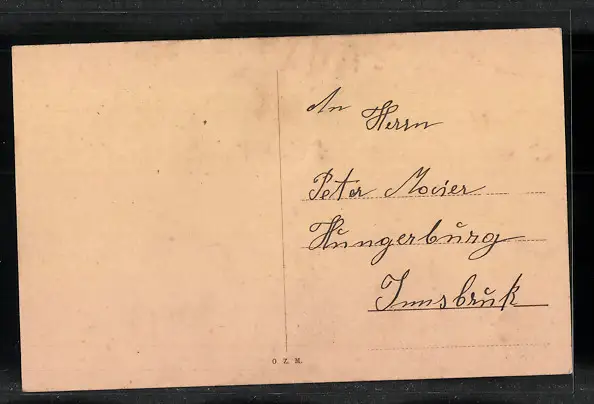 An
Herrn
Peter Mocier
Hungerburg
Innsbruk
O. Z. M.